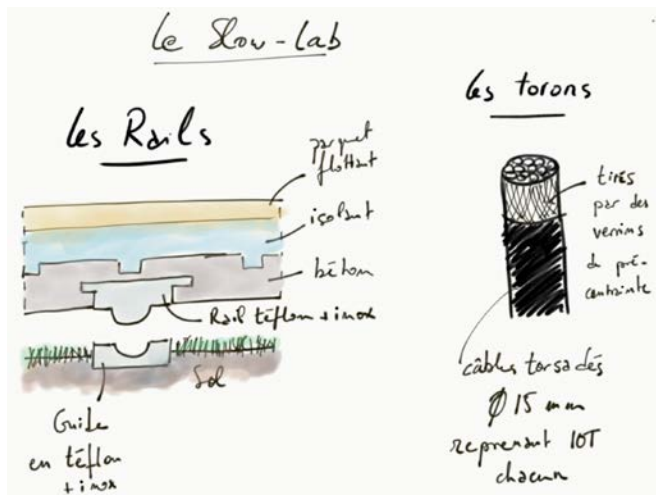 Le Slow-Lab
Les Rails
parquet
flottant
isolant
béton
Rail téflon + inox
Sol
Guide
en téflon
+ inox
Les torons
tirés
par des
verrins
de pré-
contrainte
câbles torsadés
Ø 15 mm
reprenant 10T
chacun